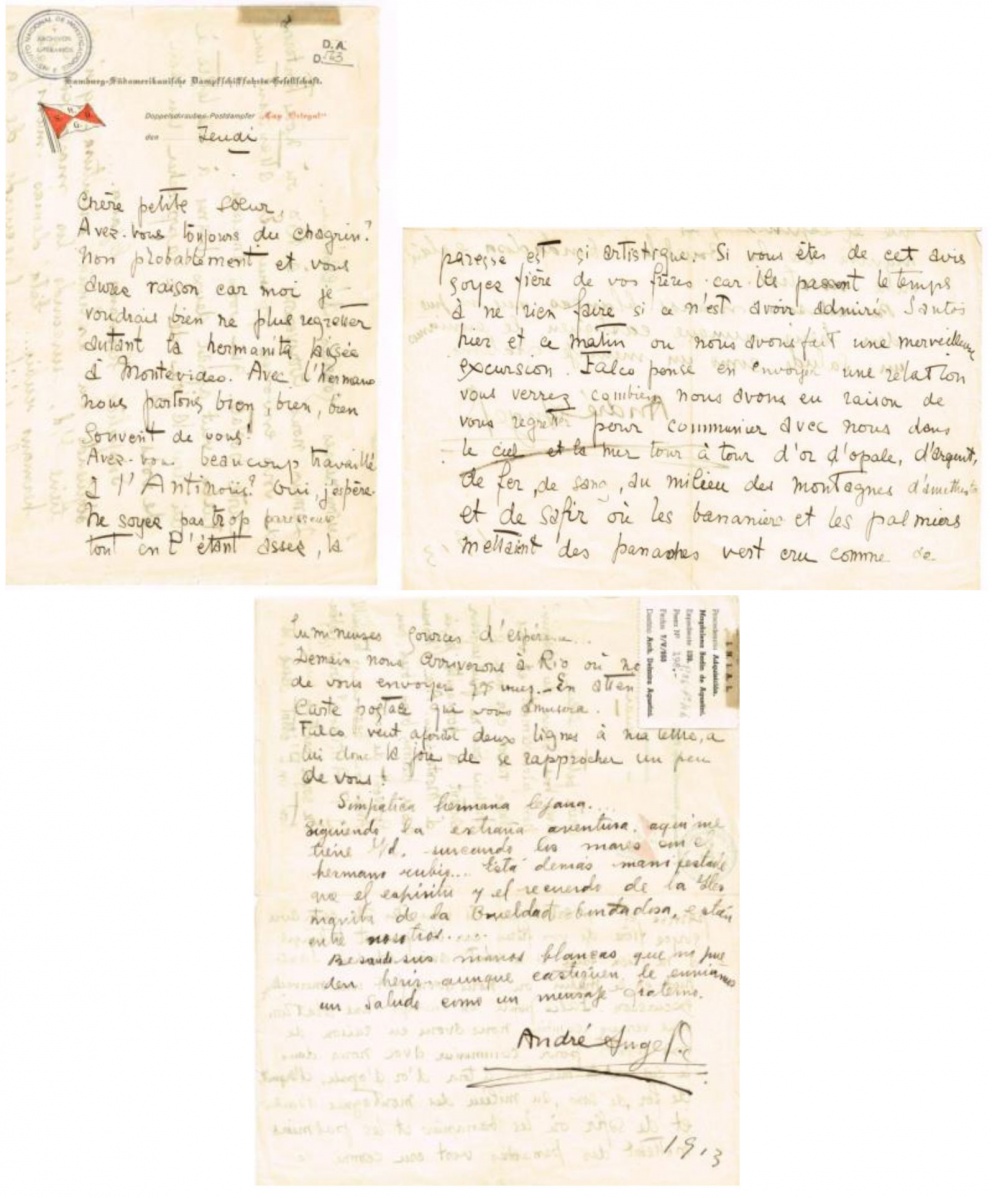 D. A.
D. 563
Hamburg-Südamerikanische Dampfschifffahrts-Gesellschaft.
Doppelschrauben-Postdampfer „Cap Ortegal"
den Jeudi
Chère petite Sœur,
Avez-vous toujours du chagrin?
Non probablement et vous
avez raison car moi je
voudrais bien ne plus regretter
autant la hermanita laissée
à Montevideo. Avec l'hermano
nous partons bien, bien, bien
Souvent de vous!
Avez-vous beaucoup travaillé
à l'Antinoüs? Oui, j'espère.
Ne soyez pas trop paresseuse
tout en l'étant assez, la
paresse est si artistique. Si vous êtes de cet avis
soyez fière de vos frères car ils passent le temps
à ne rien faire si ce n'est avoir admiré Santos
hier et ce matin où nous avons fait une merveilleuse
excursion. Falco pense en envoyer une relation
vous verrez combien nous avons eu raison de
vous regretter pour communier avec nous dans
le ciel et la mer tour à tour d'or d'opale, d'argent,
de fer, de sang, au milieu des montagnes d'améthiste
et de safir où les bananiers et les palmiers
mettaient des panaches vert cru comme de
lumineuses sources d'espérance...
Demain nous arriverons à Rio où
de vous envoyer
Carte postale que vous amusera.
Falco veut ajouter deux lignes à ma lettre, a
lui donc la joie de se rapprocher un peu
de vous!
Simpática hermana lejana....
Siguiendo la extraña aventura, aquí me
tiene Ud. surcando los mares con el
hermano rubio... Está demás manifestarle
que el espíritu y el recuerdo de la Her
manita de la Crueldad bondadosa, están
entre nosotros....
Besando sus manos blancas que no pue
den herir aunque castiguen le enviamos
un saludo como un mensaje fraterno.
André Ange F.
1913
I. N. I. A. L.
Procedencia Adquisición.
Magdalena Bertin de Agustini.
Expediente 138.
Pesos Nº 198.-
Fecha
Destino Arch. Delmira Agustini.